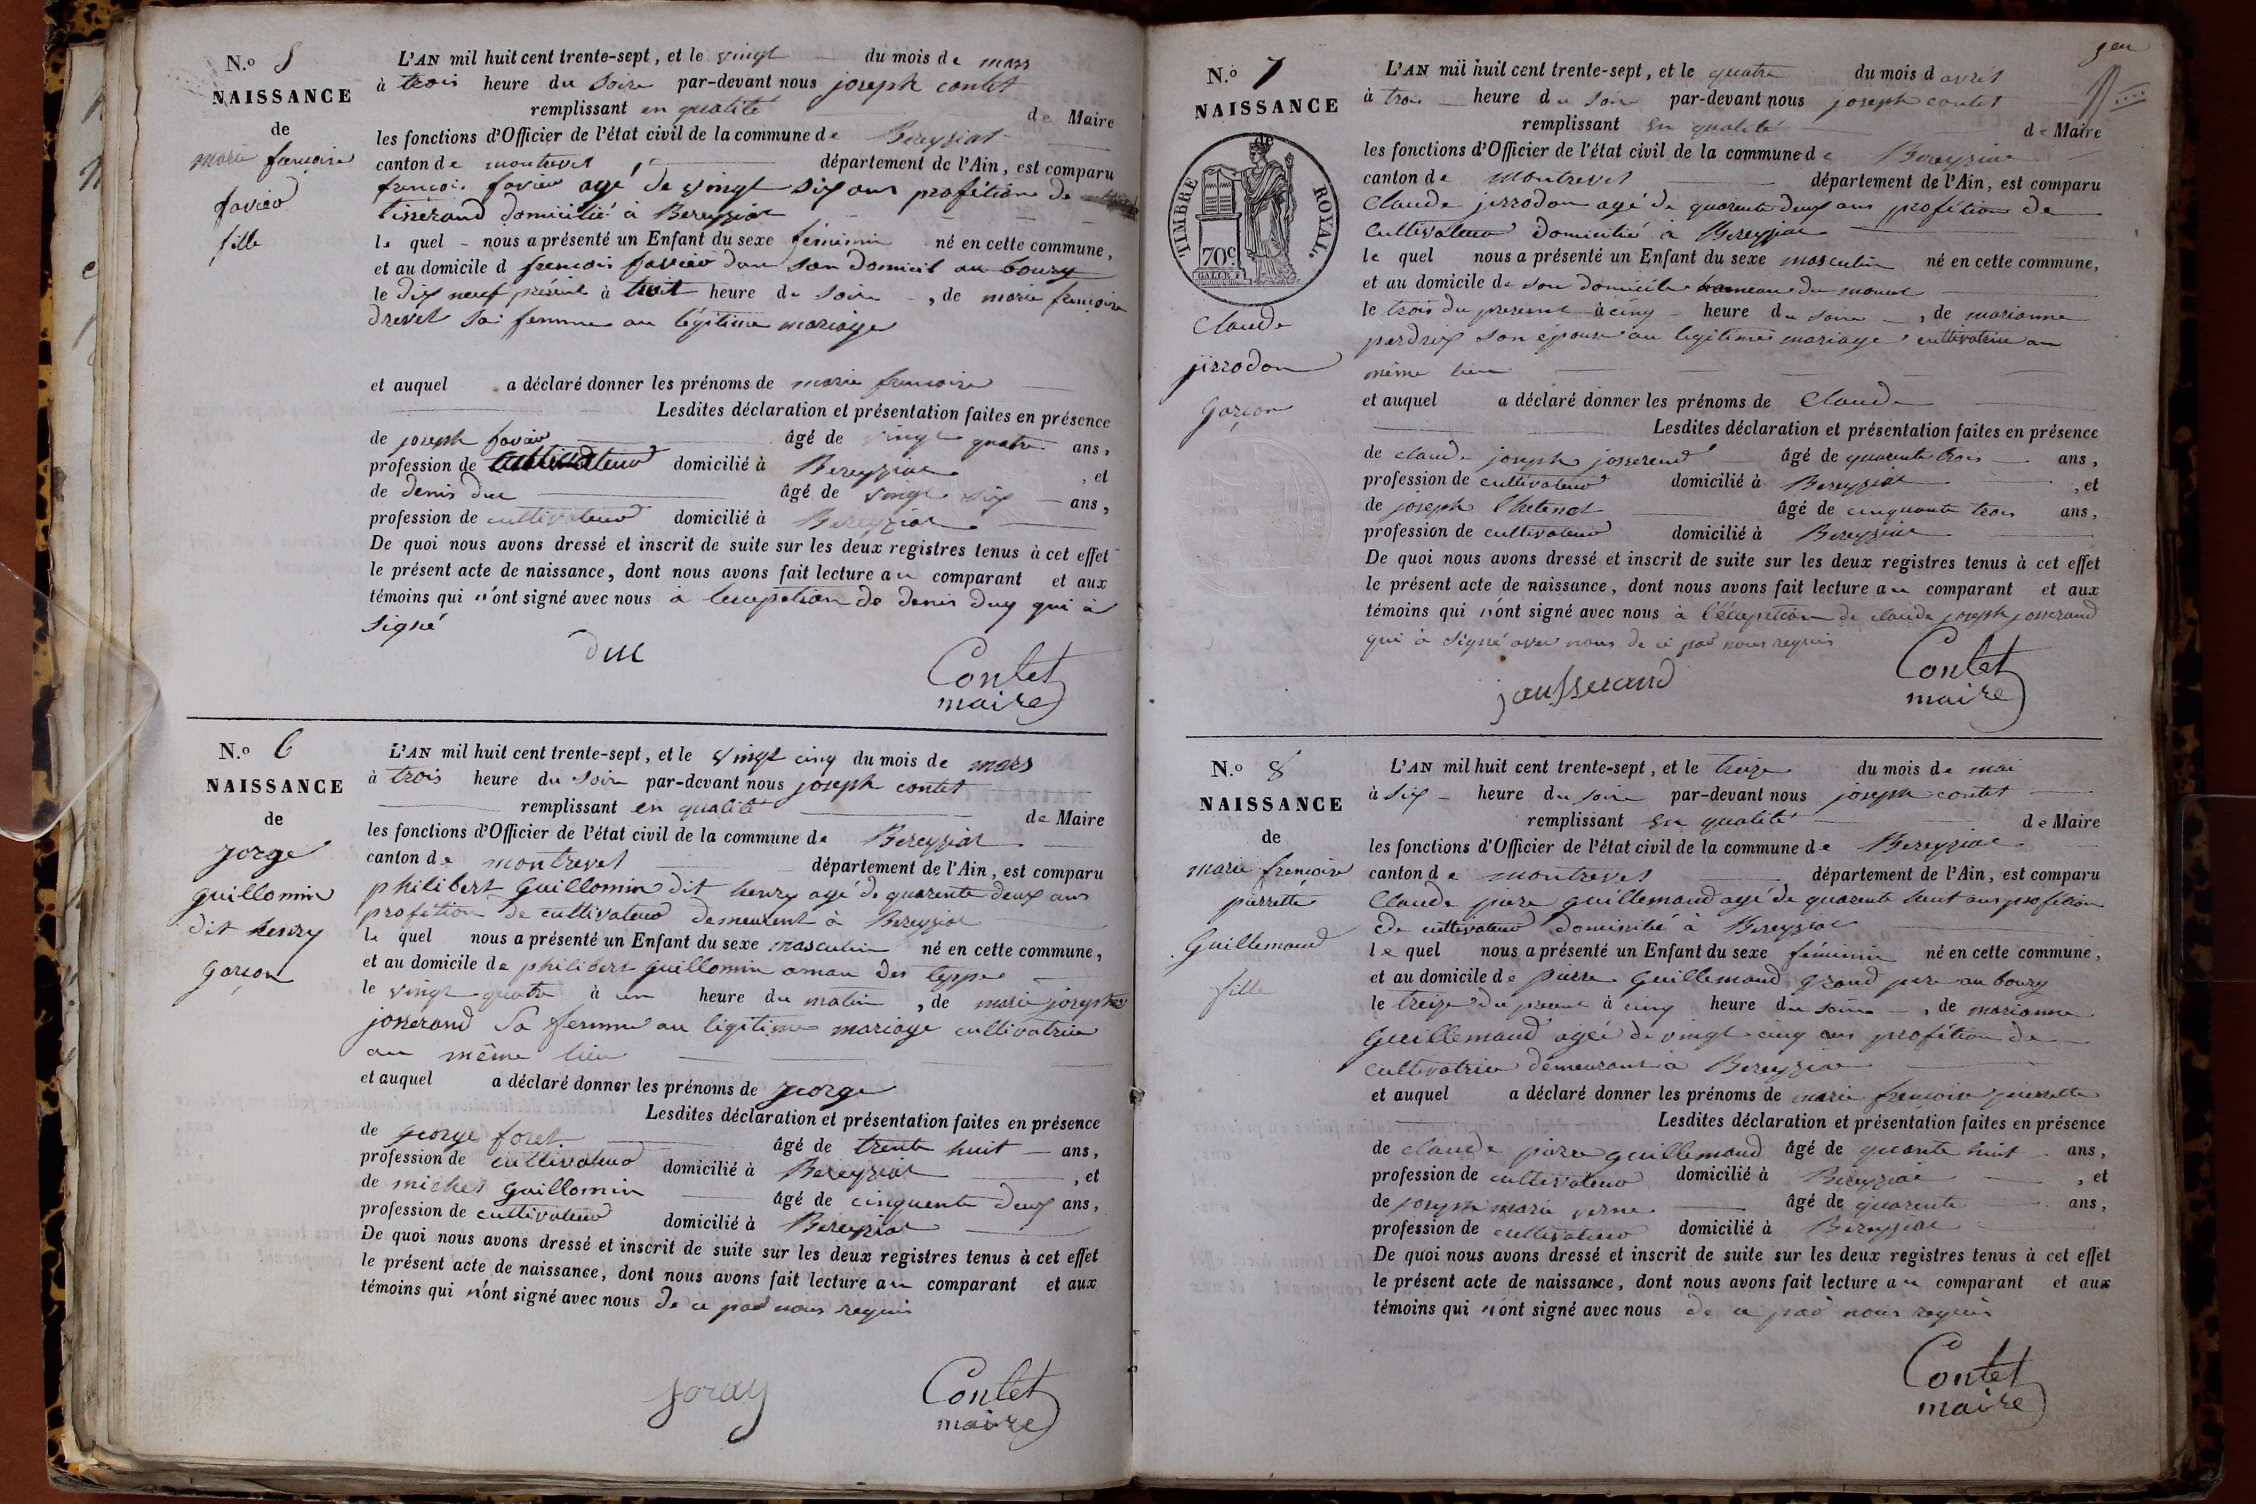 N.º 5
NAISSANCE
de
marie françoise
favier
fille
L'AN mil huit cent trente-sept, et le vingt du mois de mars
à trois heure du soire par-devant nous joseph contet
remplissant en qualité de Maire
les fonctions d'Officier de l'état civil de la commune de Bereyziat
canton de montrevel département de l'Ain, est comparu
françois favier agé de vingt six ans profétion de
tisserand domicilié à Bereyziat
le quel nous a présenté un Enfant du sexe féminin né en cette commune,
et au domicile d françois favier dans son domicil au bourg
le dix neuf présent à huit heure du soire, de marie françoise
drevet sa femme au légitime mariage
et auquel a déclaré donner les prénoms de marie francoise
Lesdites déclaration et présentation faites en présence
de joseph favier âgé de vingt quatre ans,
profession de cultivateur domicilié à Bereyziat, et
de denis duc âgé de vingt six ans,
profession de cultivateur domicilié à Bereyziat
De quoi nous avons dressé et inscrit de suite sur les deux registres tenus à cet effet
le présent acte de naissance, dont nous avons fait lecture au comparant et aux
témoins qui n'ont signé avec nous a lexception de denis duy qui à
signé
duc
Contet
maire
N.º 6
NAISSANCE
de
jorge
guillomin
dit henry
garçon
L'AN mil huit cent trente-sept, et le vingt cinq du mois de mars
à trois heure du soire par-devant nous joseph contet
remplissant en qualité de Maire
les fonctions d'Officier de l'état civil de la commune de Bereyziat
canton de montrevel département de l'Ain, est comparu
philibert guillomin dit henry agé de quarente deux ans
profétion de cultivateur demeurent à Bereyziat
le quel nous a présenté un Enfant du sexe masculin né en cette commune,
et au domicile de philibert guillomin amau des teppes
le vingt quatre à un heure du matin, de marie josephte
josserand sa femme au légitime mariage cultivatrice
au même lieu
et auquel a déclaré donner les prénoms de jeorge
Lesdites déclaration et présentation faites en présence
de george foret âgé de trente huit ans,
profession de cultivateur domicilié à Bereyziat, et
de michel guillomin âgé de cinquente deux ans,
profession de cultivateur domicilié à Bereyziat
De quoi nous avons dressé et inscrit de suite sur les deux registres tenus à cet effet
le présent acte de naissance, dont nous avons fait lecture au comparant et aux
témoins qui n'ont signé avec nous de ce par nous requis
foray
Contet
maire
N.º 7
NAISSANCE
TIMBRE ROYAL
70c
Claude
jirrodon
garçon
L'AN mil huit cent trente-sept, et le quatre du mois d avril
à trois heure du soire par-devant nous joseph contet
remplissant en qualité de Maire
les fonctions d'Officier de l'état civil de la commune de Bereyziat
canton de montrevel département de l'Ain, est comparu
Claude jirrodon agé de quarente deux ans profétion de
cultivateur domicilié à Bereyziat
le quel nous a présenté un Enfant du sexe masculin né en cette commune,
et au domicile de son domicile hameau du
le trois du présent à cinq heure du soire, de marianne
perdrix son épouse au legitime mariage cultivatrice au
même lieu
et auquel a déclaré donner les prénoms de Claude
Lesdites déclaration et présentation faites en présence
de claude joseph josserend âgé de quarente trois ans,
profession de cultivateur domicilié à Bereyziat, et
de joseph âgé de cinquante trois ans,
profession de cultivateur domicilié à Bereyziat
De quoi nous avons dressé et inscrit de suite sur les deux registres tenus à cet effet
le présent acte de naissance, dont nous avons fait lecture au comparant et aux
témoins qui n'ont signé avec nous à l'éxeption de claude joseph josserand
qui à signé avec nous de ce par nous requis
jausserand
Contet
maire
N.º 8
NAISSANCE
de
marie francoise
pierrette
Guillemaud
fille
L'AN mil huit cent trente-sept, et le treize du mois de mai
à six heure du soire par-devant nous joseph contet
remplissant en qualité de Maire
les fonctions d'Officier de l'état civil de la commune de Bereyziat
canton de montrevel département de l'Ain, est comparu
Claude piere guillemaud agé de quarente huit ans profétion
de cultivateur domicilié à Bereyziat
le quel nous a présenté un Enfant du sexe féminin né en cette commune,
et au domicile de pierre guillemaud grand pere au bourg
le treize du présent à cinq heure du soire, de marianne
guillemaud agée de vingt cinq ans profétion de
cultivatrice demeurant à Bereyziat
et auquel a déclaré donner les prénoms de marie francoise pierrette
Lesdites déclaration et présentation faites en présence
de claude piere guillemaud âgé de quarante huit ans,
profession de cultivateur domicilié à Bereyziat, et
de joseph marie verne âgé de quarente ans,
profession de cultivateur domicilié à Bereyziat
De quoi nous avons dressé et inscrit de suite sur les deux registres tenus à cet effet
le présent acte de naissance, dont nous avons fait lecture au comparant et aux
témoins qui n'ont signé avec nous de ce par nous requis
Contet
maire